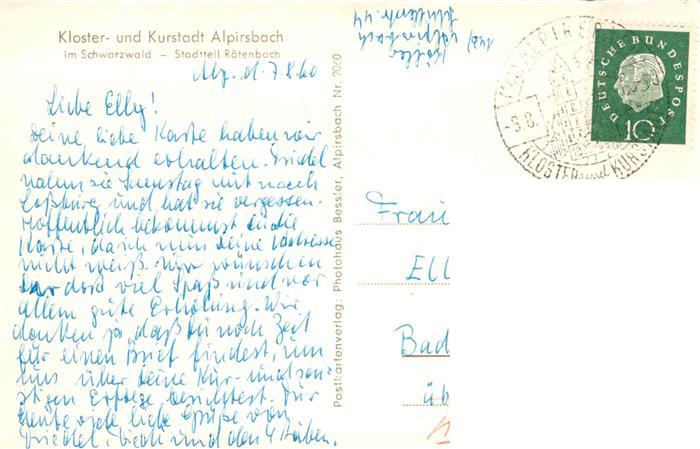 Kloster- und Kurstadt Alpirsbach
im Schwarzwald – Stadtteil Rötenbach
Alp. d. 7.8.60
Liebe Elly!
Deine liebe Karte haben wir
dankend erhalten. Friedel
nahm sie Samstag mit nach
Loßburg und hat sie vergessen.
Hoffentlich bekommst du die
Karte, da ich nun deine Adresse
nicht weiß. Wir wünschen
dir dort viel Spaß und vor
allem gute Erholung. Wir
danken ja, daß du noch Zeit
für einen Brief findest, um
uns über deine Kur- und son-
stigen Erfolge berichtest. Für
heute viele liebe Grüße von
Friedel, und den 4 Buben.
Postkartenverlag: Photohaus Bessler, Alpirsbach Nr. 2060
Alpirsbach
ALPIRSB
-8.8.
KLOSTER und KURS
DEUTSCHE BUNDESPOST
10
Frau
Ell
Bad
üb